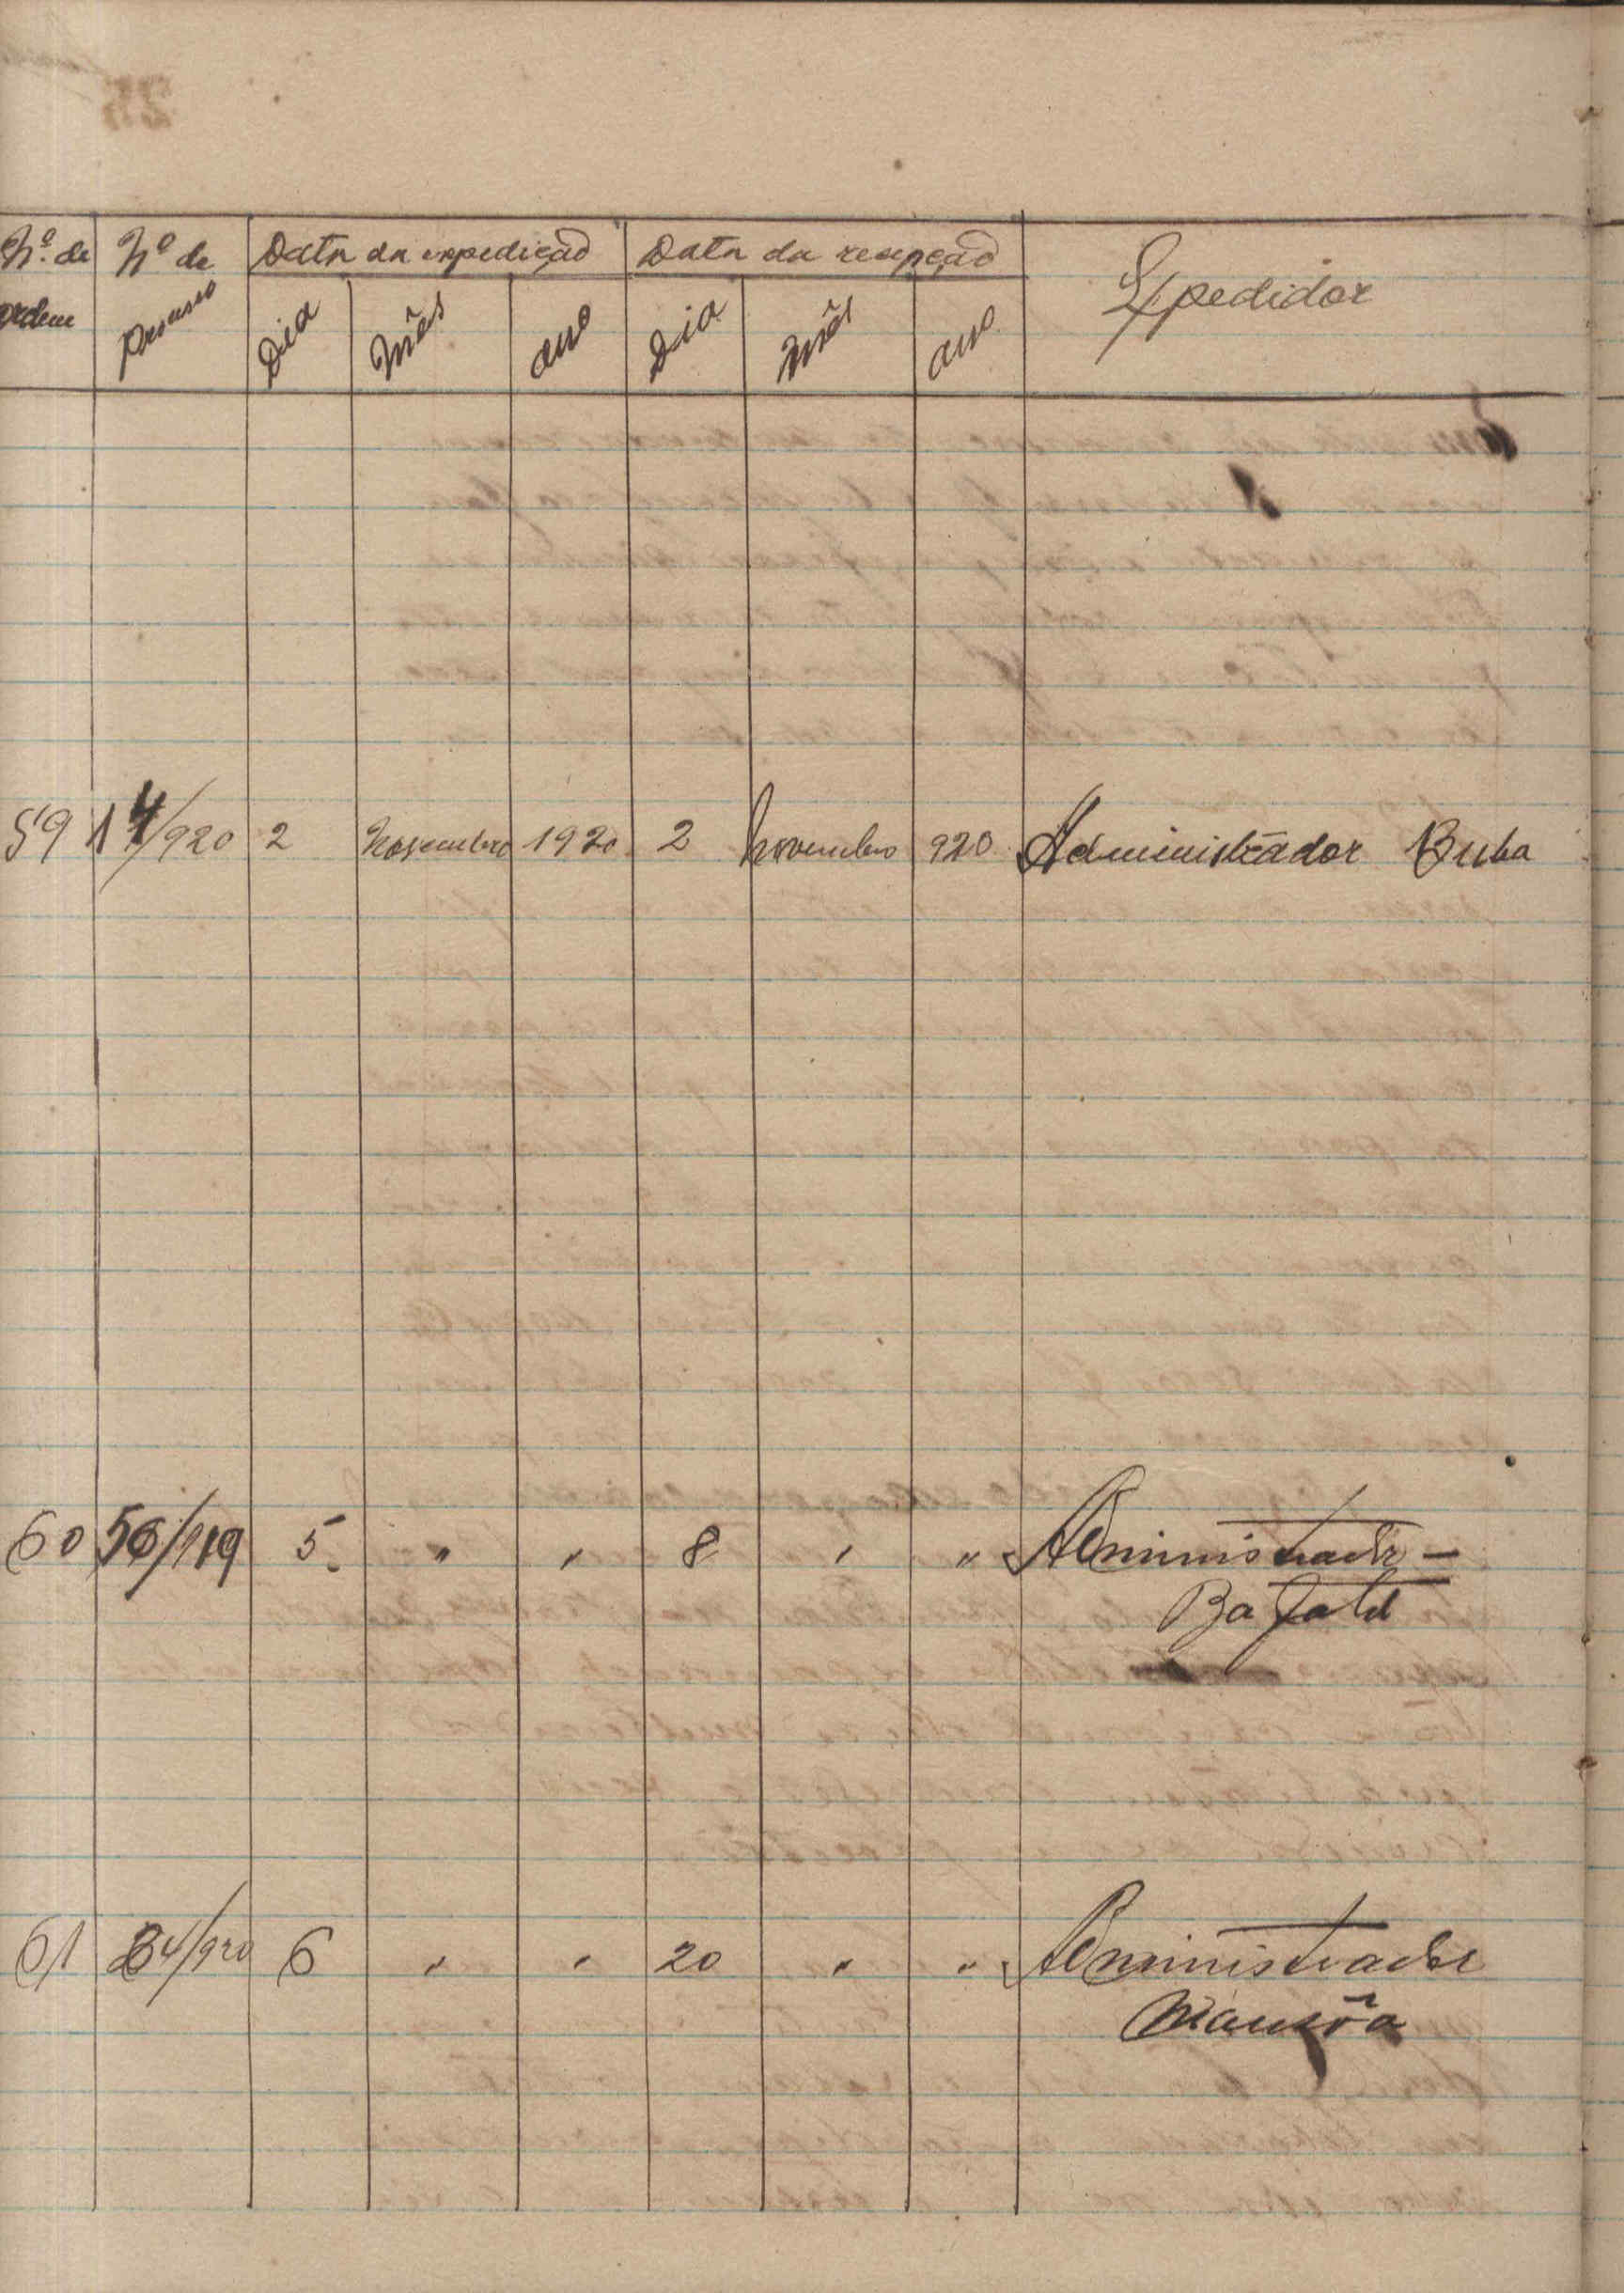 Nº de Nº de Data da expedição Data da recepção Expedidor
ordem Processo Dia Mês ano Dia Mês ano
59 14/920 2 Novembro 1920 2 Novembro 920 Administrador Buba
60 56/119 5 " " 8 " " Administrador -
Bafatá
61 84/920 6 " " 20 " " Administrador
Mansôa